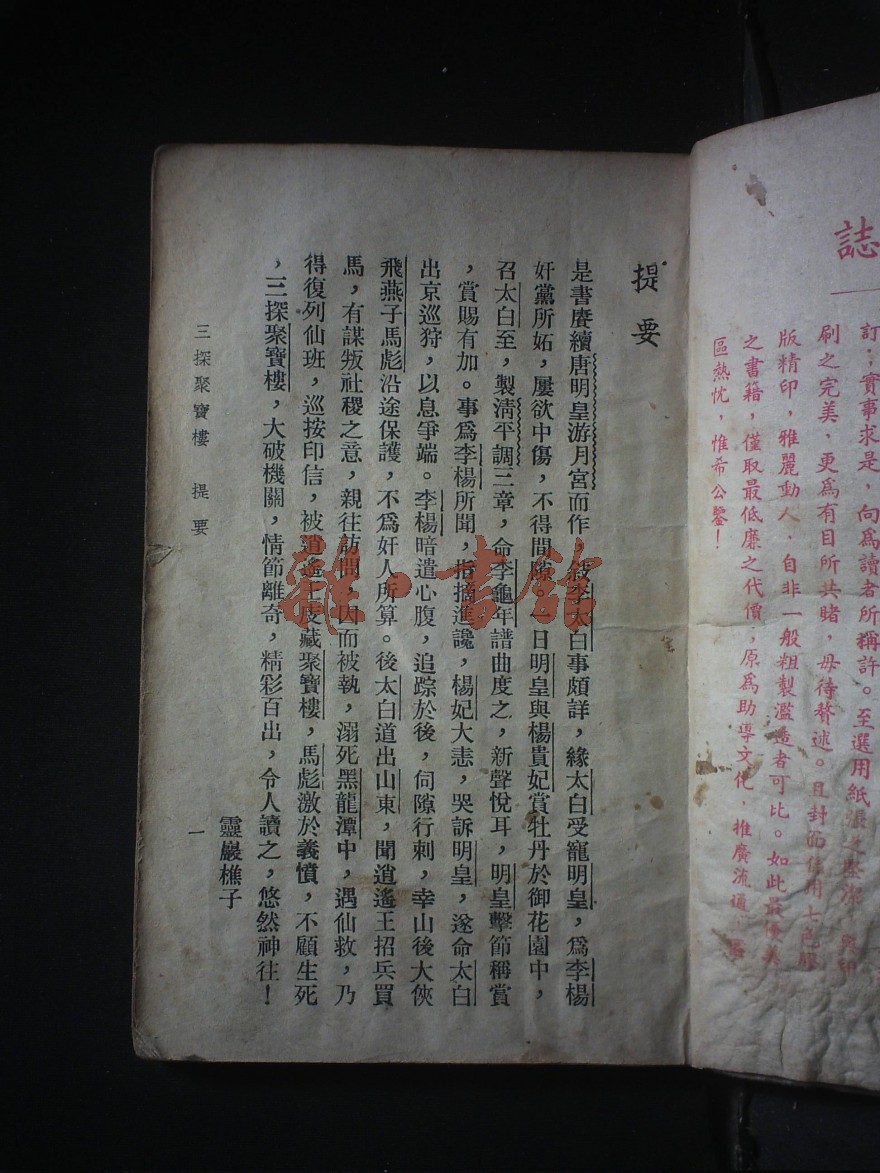 誌
訂；實事求是，向爲讀者所稱許。至選用紙張之堅潔，與印
刷之完美，更爲有目所共睹，毋待贅述。且封面信用七色膠
版精印，雅麗動人，自非一般粗製濫造者可比。如此最優美
之書籍，僅取最低廉之代價，原爲助導文化，推廣流通，
區熱忱，惟希公鑒！
提要
是書賡續唐明皇游月宮而作，敍李太白事頗詳，緣太白受寵明皇，爲李楊
奸黨所妬，屢欲中傷，不得間隙。一日明皇與楊貴妃賞牡丹於御花園中，
召太白至，製清平調三章，命李龜年譜曲度之，新聲悅耳，明皇擊節稱賞
，賞賜有加。事爲李楊所聞，指摘進讒，楊妃大恚，哭訴明皇，遂命太白
出京巡狩，以息爭端。李楊暗遣心腹，追踪於後，伺隙行刺，幸山後大俠
飛燕子馬彪沿途保護，不爲奸人所算。後太白道出山東，聞逍遙王招兵買
馬，有謀叛社稷之意，親往訪問，因而被執，溺死黑龍潭中，遇仙救，乃
得復列仙班，巡按印信，被逍遙王庋藏聚寶樓，馬彪激於義憤，不顧生死
，三探聚寶樓，大破機關，情節離奇，精彩百出，令人讀之，悠然神往！
靈巖樵子
三探聚寶樓 提要
一
雜·書館